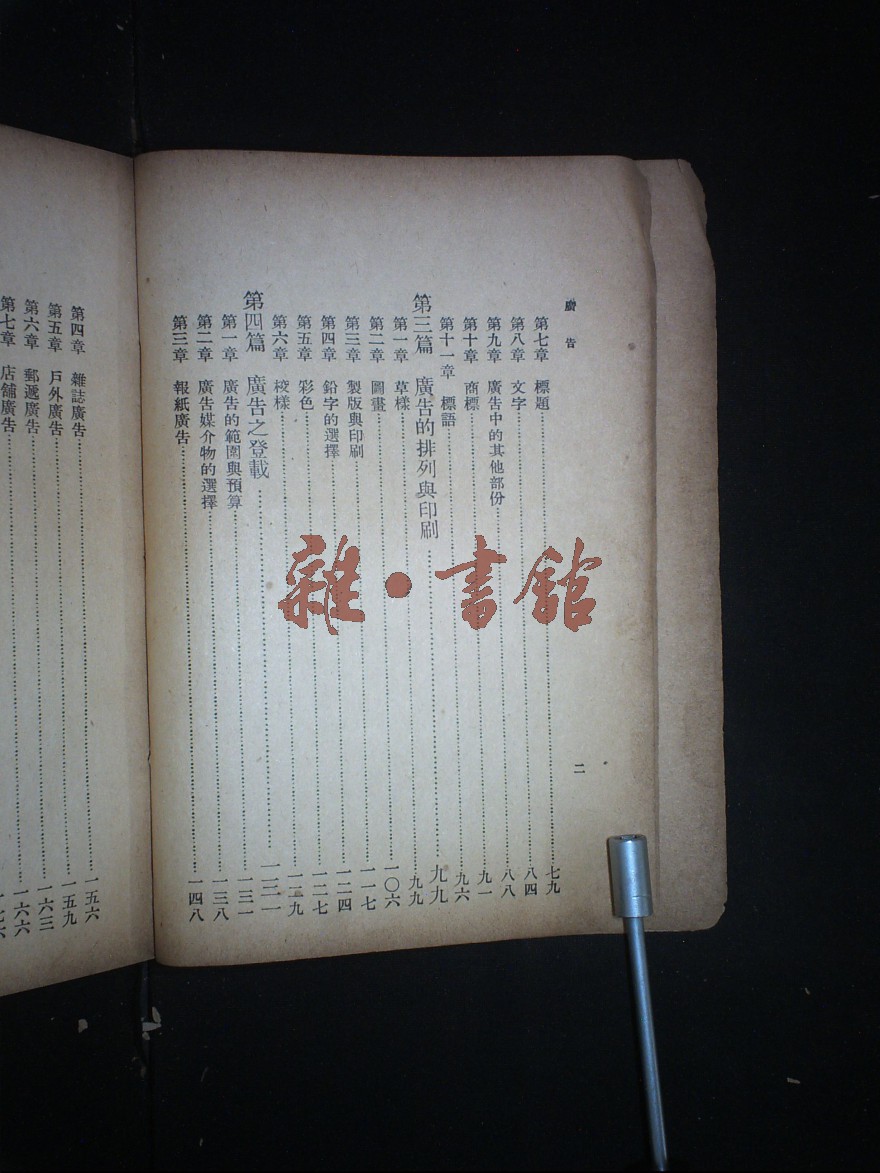 廣告
第七章 標題……七九
第八章 文字……八四
第九章 廣告中的其他部份……八八
第十章 商標……九一
第十一章 標語……九六
第三篇 廣告的排列與印刷……九九
第一章 草樣……九九
第二章 圖畫……一〇六
第三章 製版與印刷……一一七
第四章 鉛字的選擇……一二四
第五章 彩色……一二七
第六章 校樣……一二九
第四篇 廣告之登載……一三一
第一章 廣告的範圍與預算……一三一
第二章 廣告媒介物的選擇……一三八
第三章 報紙廣告……一四八
二
第四章 雜誌廣告……一五六
第五章 戶外廣告……一五九
第六章 郵遞廣告……一六三
第七章 店舖廣告……一六六
雜·書館